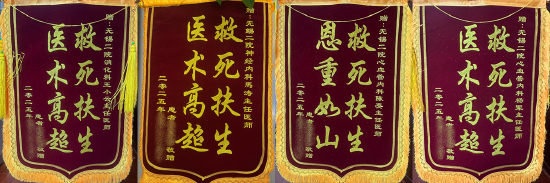 赠:无锡二院消化科王小主任医师
救死扶生
医术高超
二〇二五年 患者 敬赠
赠:无锡二院神经内科马涛主任医师
救死扶生
医术高超
二〇二五年 患者 敬赠
赠:无锡二院心血管内科陈主任医师
救死扶生
恩重如山
二〇二五年 患者 敬赠
赠:无锡二院心血管内科杨军主任医师
救死扶生
医术高超
二〇二五年 患者 敬赠